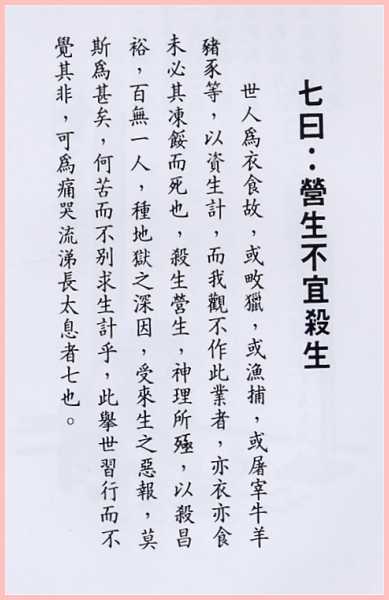 七曰：營生不宜殺生
世人為衣食故，或畋獵，或漁捕，或屠宰牛羊
豬豕等，以資生計，而我觀不作此業者，亦衣亦食
未必其凍餒而死也，殺生營生，神理所殛，以殺昌
裕，百無一人，種地獄之深因，受來生之惡報，莫
斯為甚矣，何苦而不別求生計乎，此舉世習行而不
覺其非，可為痛哭流涕長太息者七也。